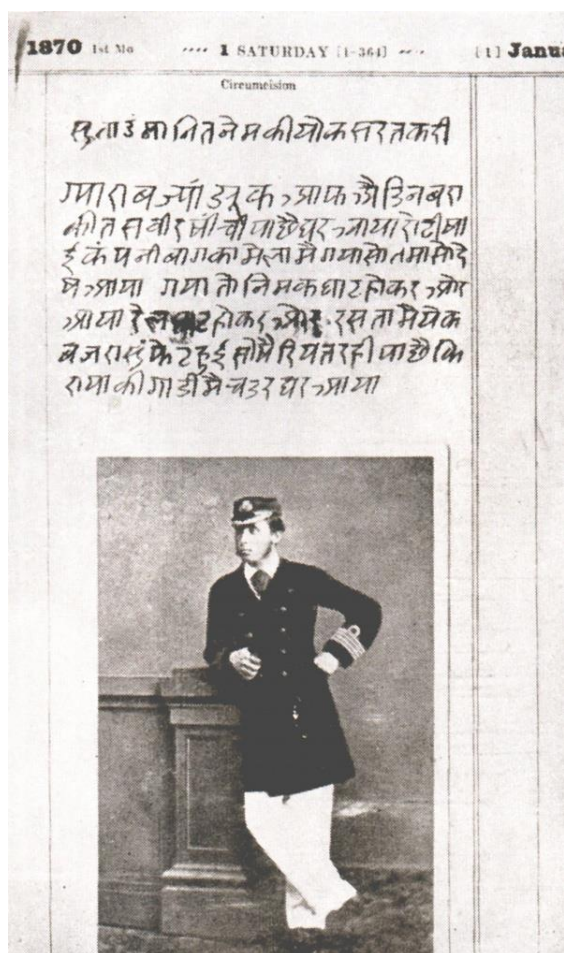 1870 1st Mo .... 1 SATURDAY [1-364] .... [1] Janua
Circumcision
नित नेम की यो कसरत करी
ग्यारा बज्यां ड्यूक आफ
की तसवीर षींची पाछै घर आया रोटी षा
ई कंपनी बाग का मेला मै गया सो तमासो दे
ष आया गया तो निमक घाट होकर और
आया होकर और रसता मै येक
हुई सो षैरियत रही पाछै कि
राया की गाडी मै चडर घर आया